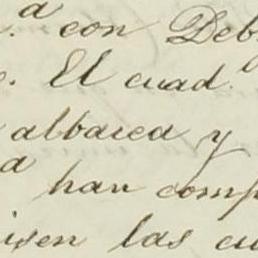 .ª con Deb
. El cuad.
albacea y
a han comp
isen las cu